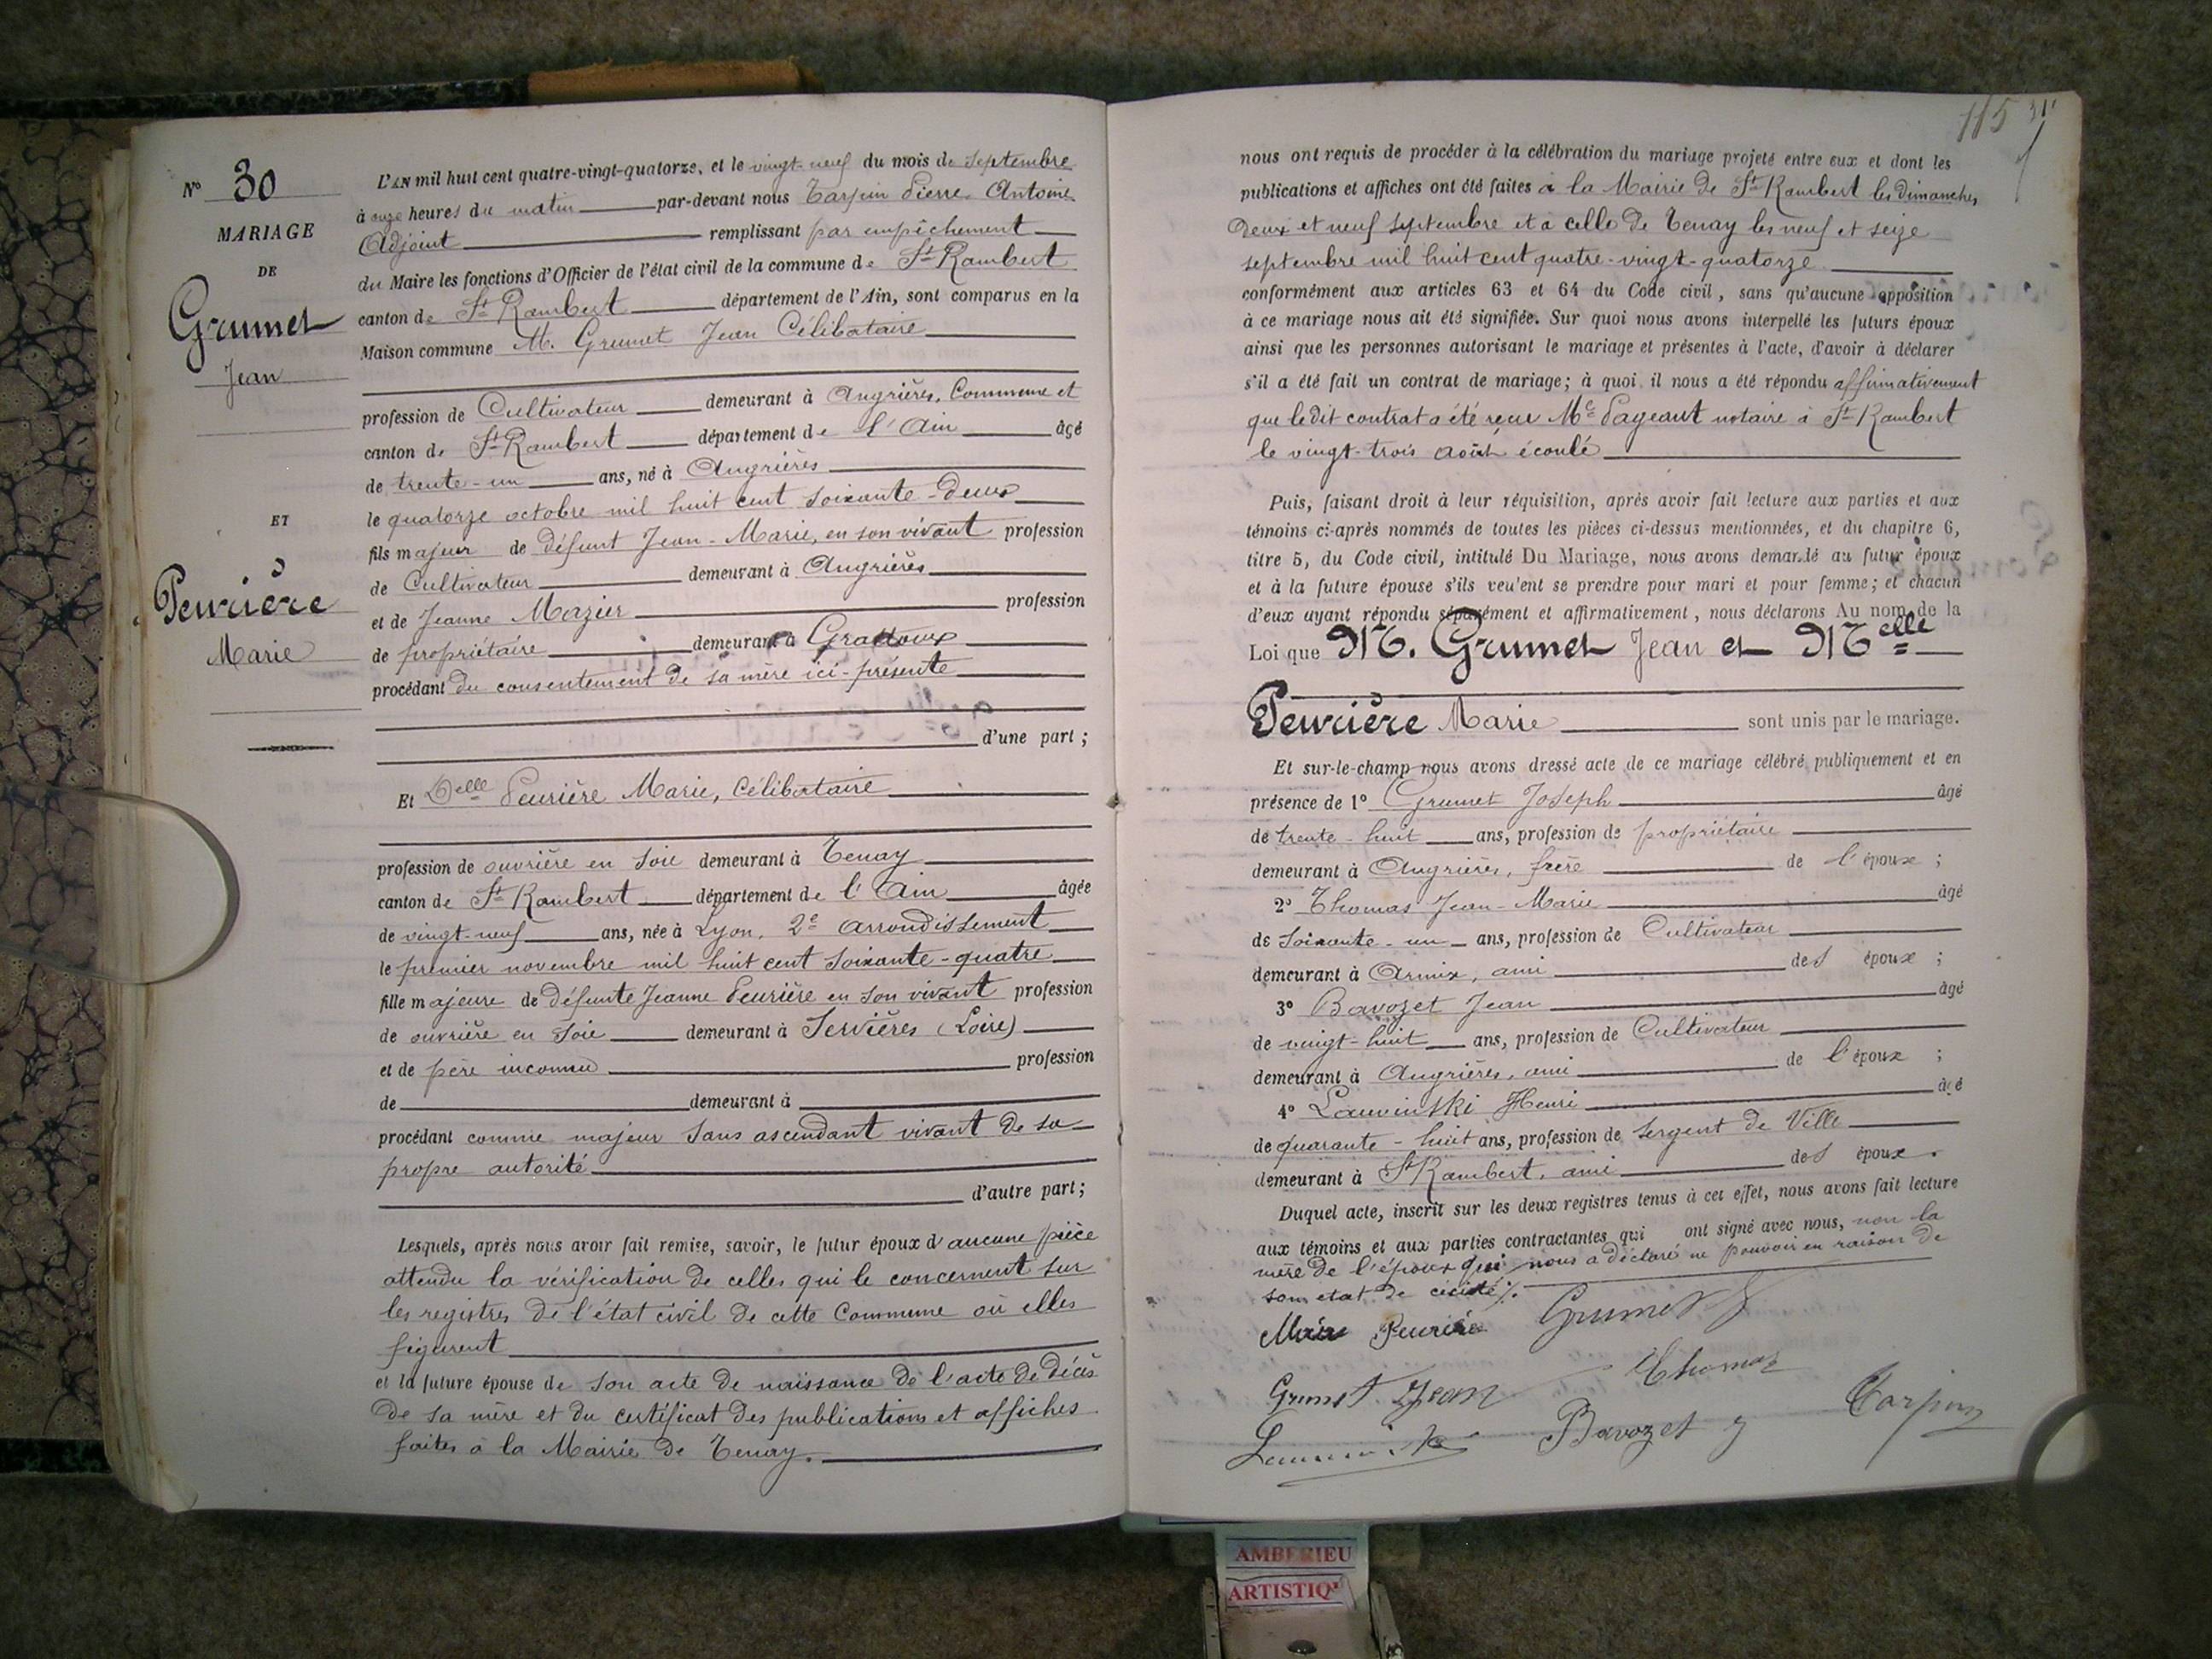 N° 30
MARIAGE
DE
Grumet
Jean
ET
Peurière
Marie
L'AN mil huit cent quatre-vingt-quatorze, et le vingt-neuf du mois de septembre
à onze heures du matin par-devant nous Tarpin Pierre Antoine
Adjoint remplissant par empêchement
du Maire les fonctions d'Officier de l'état civil de la commune de St Rambert
canton de St Rambert département de l'Ain, sont comparus en la
Maison commune M. Grumet Jean Célibataire
profession de Cultivateur demeurant à Angrières, Commune et
canton de St Rambert département de l'Ain âgé
de trente-un ans, né à Angrières
le quatorze octobre mil huit cent soixante-deux
fils majeur de défunt Jean-Marie, en son vivant profession
de Cultivateur demeurant à Angrières
et de Jeanne Mazier profession
de propriétaire demeurant à Grattoux
procédant du consentement de sa mère ici-présente
d'une part ;
Et Delle Peurière Marie, Célibataire
profession de ouvrière en soie demeurant à Tenay
canton de St Rambert département de l'Ain âgée
de vingt-neuf ans, née à Lyon, 2e arrondissement
le premier novembre mil huit cent soixante-quatre
fille majeure de défunte Jeanne Peurière en son vivant profession
de ouvrière en soie demeurant à Servières (Loire)
et de père inconnu profession
de demeurant à
procédant comme majeur sans ascendant vivant de sa
propre autorité
d'autre part ;
Lesquels, après nous avoir fait remise, savoir, le futur époux d'aucune pièce
attendu la vérification de celles qui le concernent sur
les registres de l'état civil de cette Commune où elles
figurent
et la future épouse de son acte de naissance de l'acte de décès
de sa mère et du certificat des publications et affiches
faites à la Mairie de Tenay.
115
nous ont requis de procéder à la célébration du mariage projeté entre eux et dont les
publications et affiches ont été faites à la Mairie de St Rambert les dimanches
deux et neuf septembre et à celle de Tenay les neuf et seize
septembre mil huit cent quatre-vingt-quatorze
conformément aux articles 63 et 64 du Code civil, sans qu'aucune opposition
à ce mariage nous ait été signifiée. Sur quoi nous avons interpellé les futurs époux
ainsi que les personnes autorisant le mariage et présentes à l'acte, d'avoir à déclarer
s'il a été fait un contrat de mariage ; à quoi il nous a été répondu affirmativement
que le dit contrat a été reçu Me Pageaut notaire à St Rambert
le vingt-trois août écoulé
Puis, faisant droit à leur réquisition, après avoir fait lecture aux parties et aux
témoins ci-après nommés de toutes les pièces ci-dessus mentionnées, et du chapitre 6,
titre 5, du Code civil, intitulé Du Mariage, nous avons demandé au futur époux
et à la future épouse s'ils veulent se prendre pour mari et pour femme ; et chacun
d'eux ayant répondu séparément et affirmativement, nous déclarons Au nom de la
Loi que M. Grumet Jean et Melle
Peurière Marie sont unis par le mariage.
Et sur-le-champ nous avons dressé acte de ce mariage célébré publiquement et en
présence de 1° Grumet Joseph âgé
de trente-huit ans, profession de propriétaire
demeurant à Angrières, frère de l'époux ;
2° Thomas Jean-Marie âgé
de soixante-un ans, profession de Cultivateur
demeurant à Armix, ami des époux ;
3° Bavozet Jean âgé
de vingt-huit ans, profession de Cultivateur
demeurant à Angrières, ami de l'époux ;
4° Lauvinski Henri âgé
de quarante-huit ans, profession de sergent de Ville
demeurant à St Rambert, ami des époux.
Duquel acte, inscrit sur les deux registres tenus à cet effet, nous avons fait lecture
aux témoins et aux parties contractantes qui ont signé avec nous, non la
mère de l'époux qui nous a déclaré ne pouvoir en raison de
son état de cécité.
Marie Peurière Grumet J
Grumet Jean Thomas
Bavozet J Tarpin
AMBERIEU
ARTISTIQ